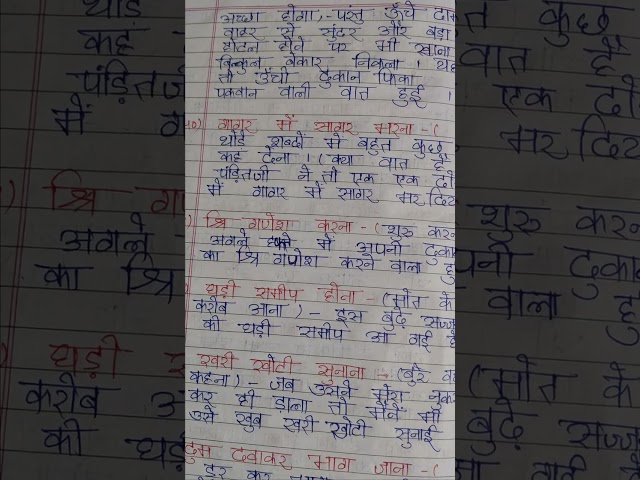 अच्छा होगा,- परंतु ऊँचे
बाहर से सुंदर और बड़ा
होटल होने पर भी खाना
बिल्कुल बेकार निकला। यह
तो ऊँची दुकान फिका
पकवान वाली बात हुई।
10) गागर में सागर भरना -(
थोडे शब्दों में बहुत कुछ
कह देना। (क्या बात है
पंड़ितजी ने तो एक एक दो
में गागर में सागर भर दिट
) श्रि गणेश करना - (शुरु करन
अगले में अपनी दुका
का श्रि गणेश करने वाला हु
) घड़ी समीप होना - (मौत के
करीब आना) - इस बुढ़े सज्ज
की घड़ी समीप आ गई है
खरी खोटी सुनाना - (बुरे
कहना) - जब उसने मेरा नुक
कर ही डाला तो मैंने भी
उसे खुब खरी खोटी सुनाई
दुम दबाकर भाग जाना -(
डर कर